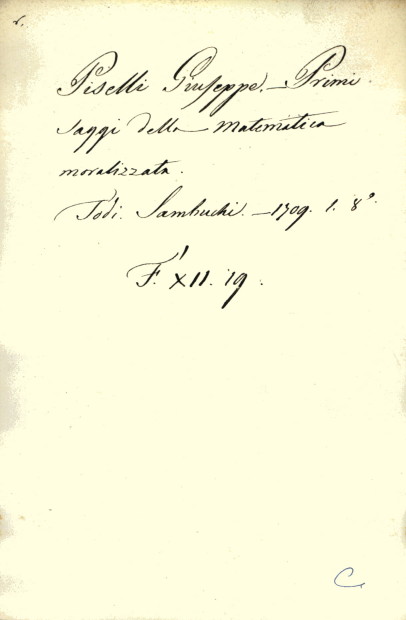 Piselli Giuseppe. — Primi
saggi della Matematica
moralizzata.
Todi. Sambuchi. — 1709. 1. 8°.
F. XII. 19.
C